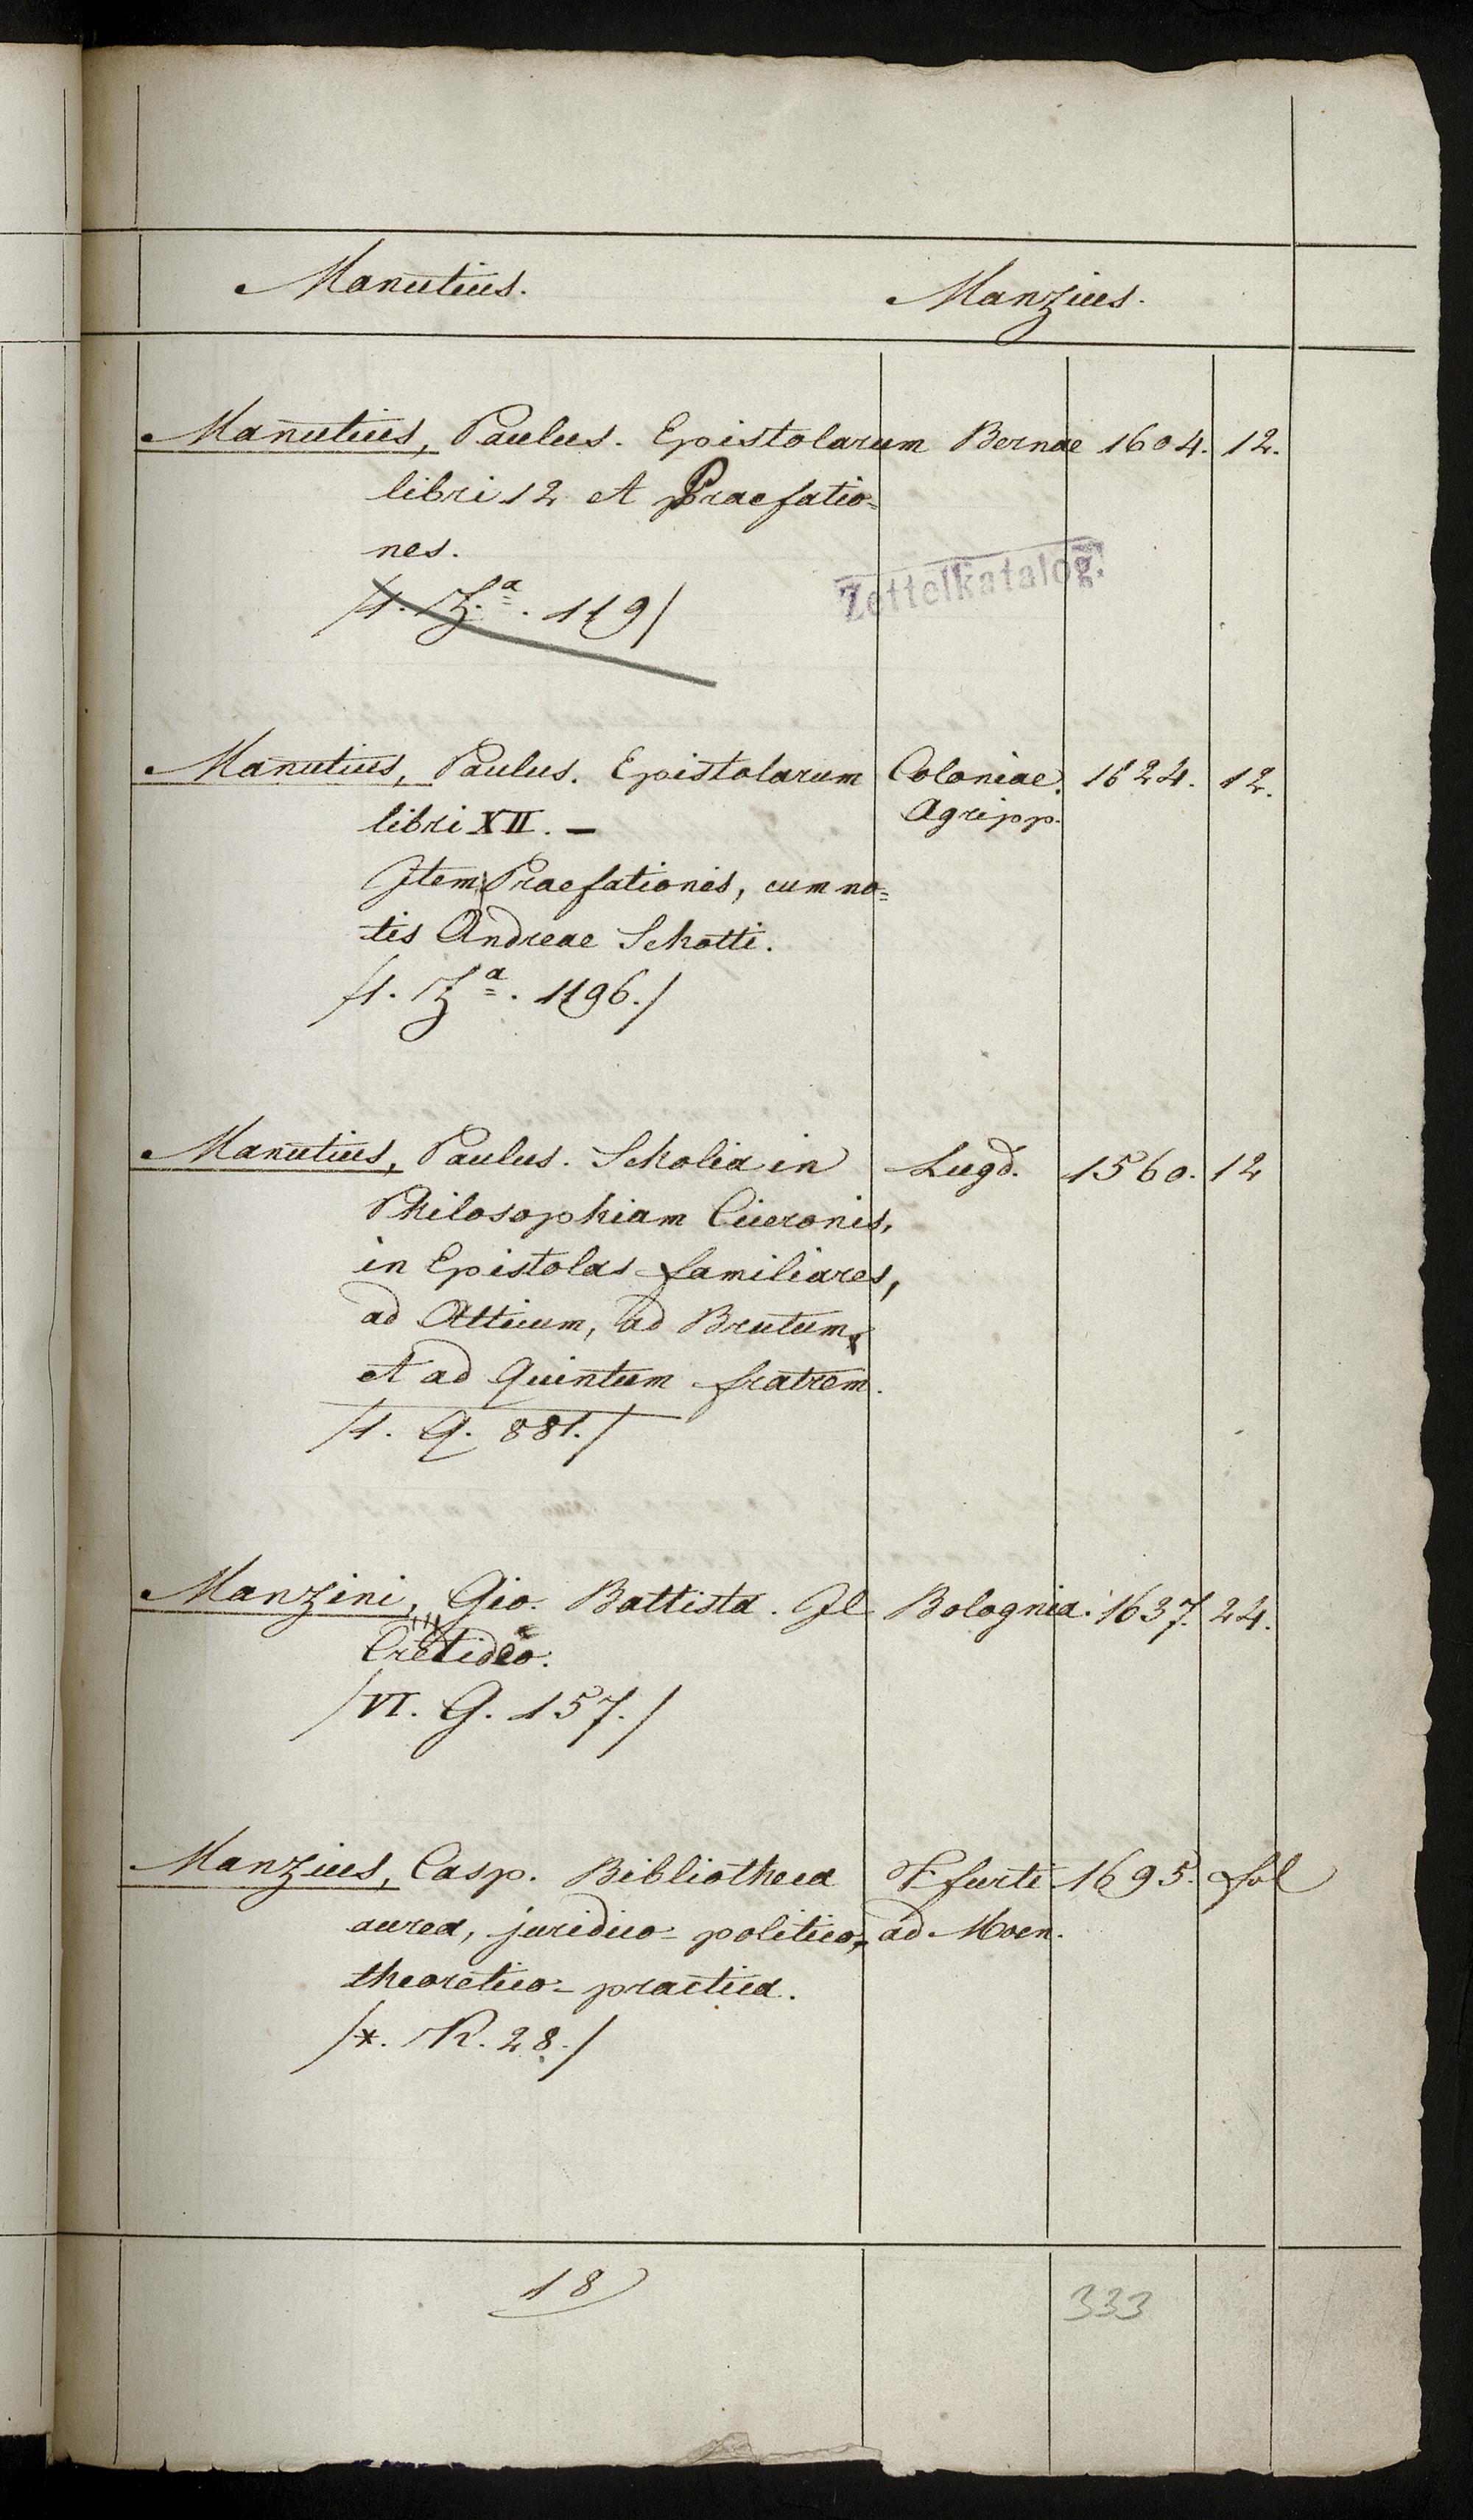 Manutius. Manzius.
Manutius, Paulus. Epistolarum Bernae 1604. 12.
libri 12 et Praefatio=
nes.
Zettelkatalog.
/1. Z.a. 119/
Manutius, Paulus. Epistolarum Coloniae 1624. 12.
libri XII. — Agripp.
Item Praefationes, cum no=
tis Andreae Schotti.
/1. Za. 1196./
Manutius, Paulus. Scholia in Lugd. 1560. 12
Philosophiam Ciceronis,
in Epistolas familiares,
ad Atticum, ad Brutum,
et ad Quintum fratrem.
/1. Q. 881./
Manzini, Gio. Battista. Il Bolognia. 1637. 24.
Cretideo.
/VI. G. 157./
Manzius, Casp. Bibliotheca Ffurti 1695. fol
aurea, juridico-politico, ad Moen.
theoretico-practica.
/*. R. 28./
18 333